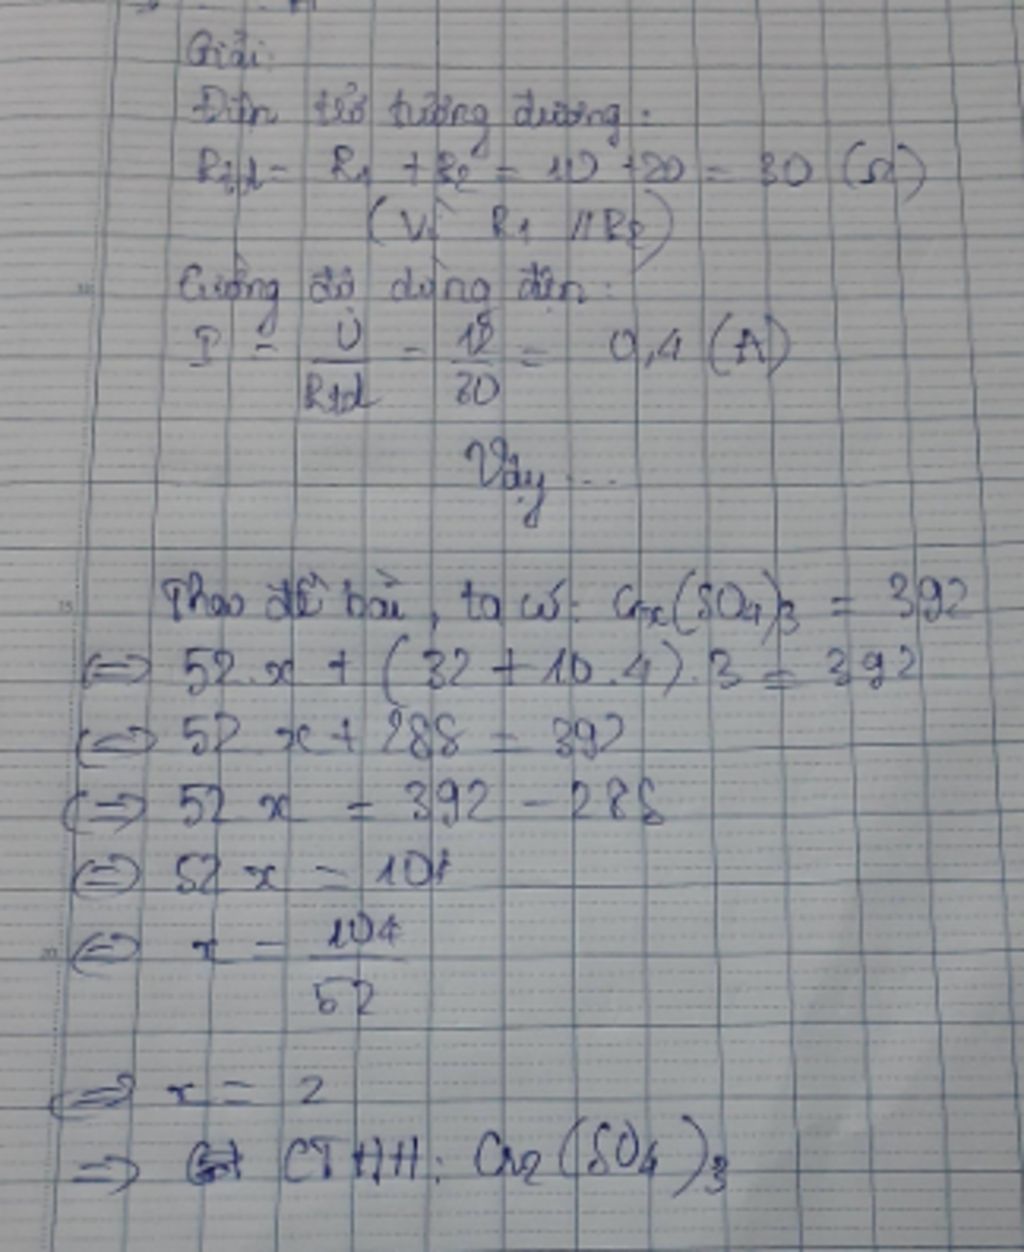 Giải:
Điện trở tương đương:
Rtđ = R1 + R2 = 10 + 20 = 30 (Ω)
(Vì R1 // R2)
Cường độ dòng điện:
I = U/Rtđ = 12/30 = 0,4 (A)
Vậy ...
Theo đề bài, ta có: Crx(SO4)3 = 392
<=> 52.x + (32 + 16.4).3 = 392
<=> 52 x + 288 = 392
<=> 52 x = 392 - 288
<=> 52 x = 104
<=> x = 104/52
<=> x = 2
=> CTHH: Cr2(SO4)3